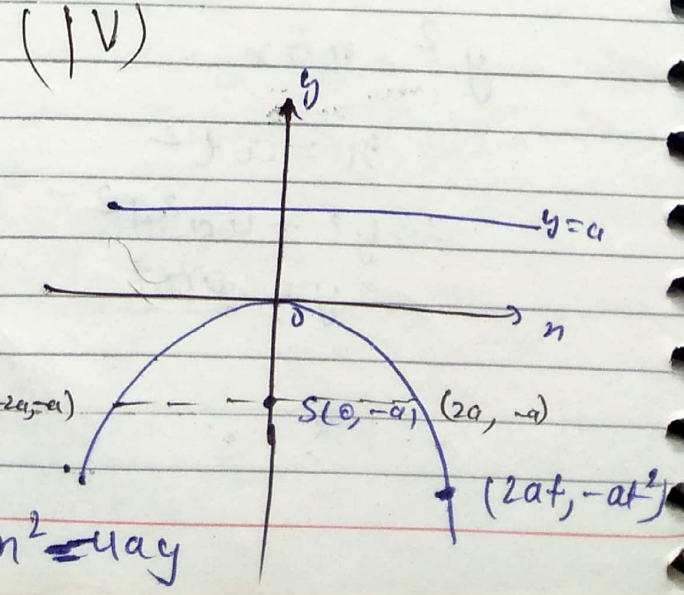 (IV)
y
y=a
0
x
-2a,-a)
S(0, -a)
(2a, -a)
(2at, -at²)
x² = -4ay